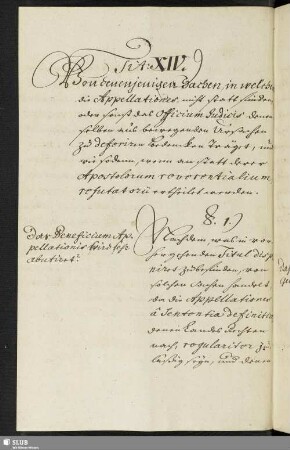 Tit: XIV.
Von denenjenigen Sachen, in welchen
die Appellationes nicht statt finden,
oder sonst das Officium Judicis denen
selben aus bewegenden Ursachen
zu deferiren Bedencken Trägt, und
wie sodann, wenn an statt derer
Apostolorum reverentialium
refutatorii ertheilet werden.
§. 1.
Das Beneficium Ap-
pellationis wird sehr
abutiret.
Nachdem, was in vor-
hergehenden Titul dispo-
niret zu befinden, von
solchen Sachen handelt
da die Appellationes
à Sententia definitiva
denen Landes Rechten
nach, regulariter zu-
läßig seyn, und denen
SLUB